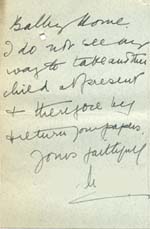 Home
I do not see my
way to take another
child at present
& therefore beg
to return your papers.
Yours faithfully